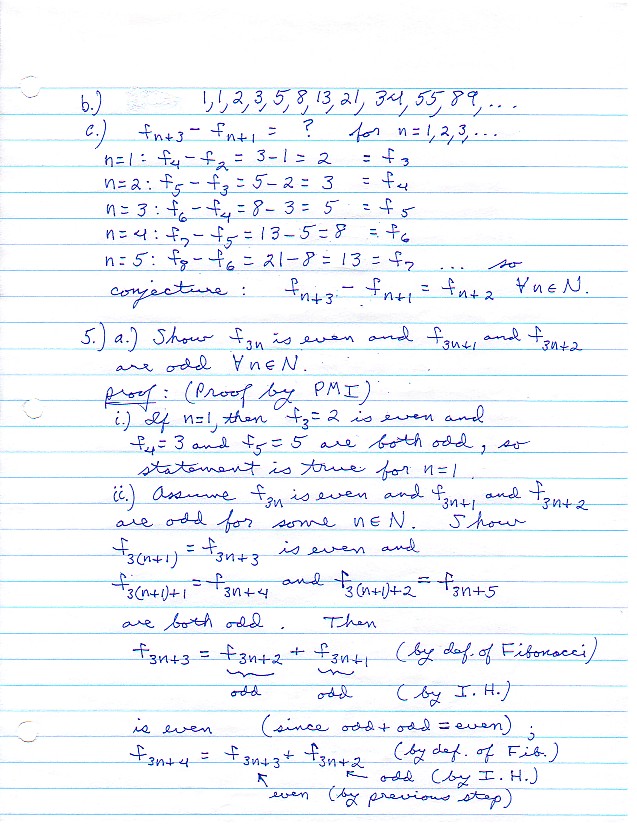 b.) 1, 1, 2, 3, 5, 8, 13, 21, 34, 55, 89, ...
c.) f_{n+3} - f_{n+1} = ? for n=1,2,3,...
n=1: f_4 - f_2 = 3-1 = 2 = f_3
n=2: f_5 - f_3 = 5-2 = 3 = f_4
n=3: f_6 - f_4 = 8-3 = 5 = f_5
n=4: f_7 - f_5 = 13-5=8 = f_6
n=5: f_8 - f_6 = 21-8 = 13 = f_7 ... so
conjecture: f_{n+3} - f_{n+1} = f_{n+2} ∀n∈N.
5.) a.) Show f_{3n} is even and f_{3n+1} and f_{3n+2}
are odd ∀n∈N.
proof: (Proof by PMI)
i.) If n=1, then f_3=2 is even and
f_4=3 and f_5=5 are both odd, so
statement is true for n=1
ii.) Assume f_{3n} is even and f_{3n+1} and f_{3n+2}
are odd for some n∈N. Show
f_{3(n+1)} = f_{3n+3} is even and
f_{3(n+1)+1} = f_{3n+4} and f_{3(n+1)+2} = f_{3n+5}
are both odd. Then
f_{3n+3} = f_{3n+2} + f_{3n+1} (by def. of Fibonacci)
odd odd (by I.H.)
is even (since odd + odd = even);
f_{3n+4} = f_{3n+3} + f_{3n+2} (by def. of Fib.)
odd (by I.H.)
even (by previous step)